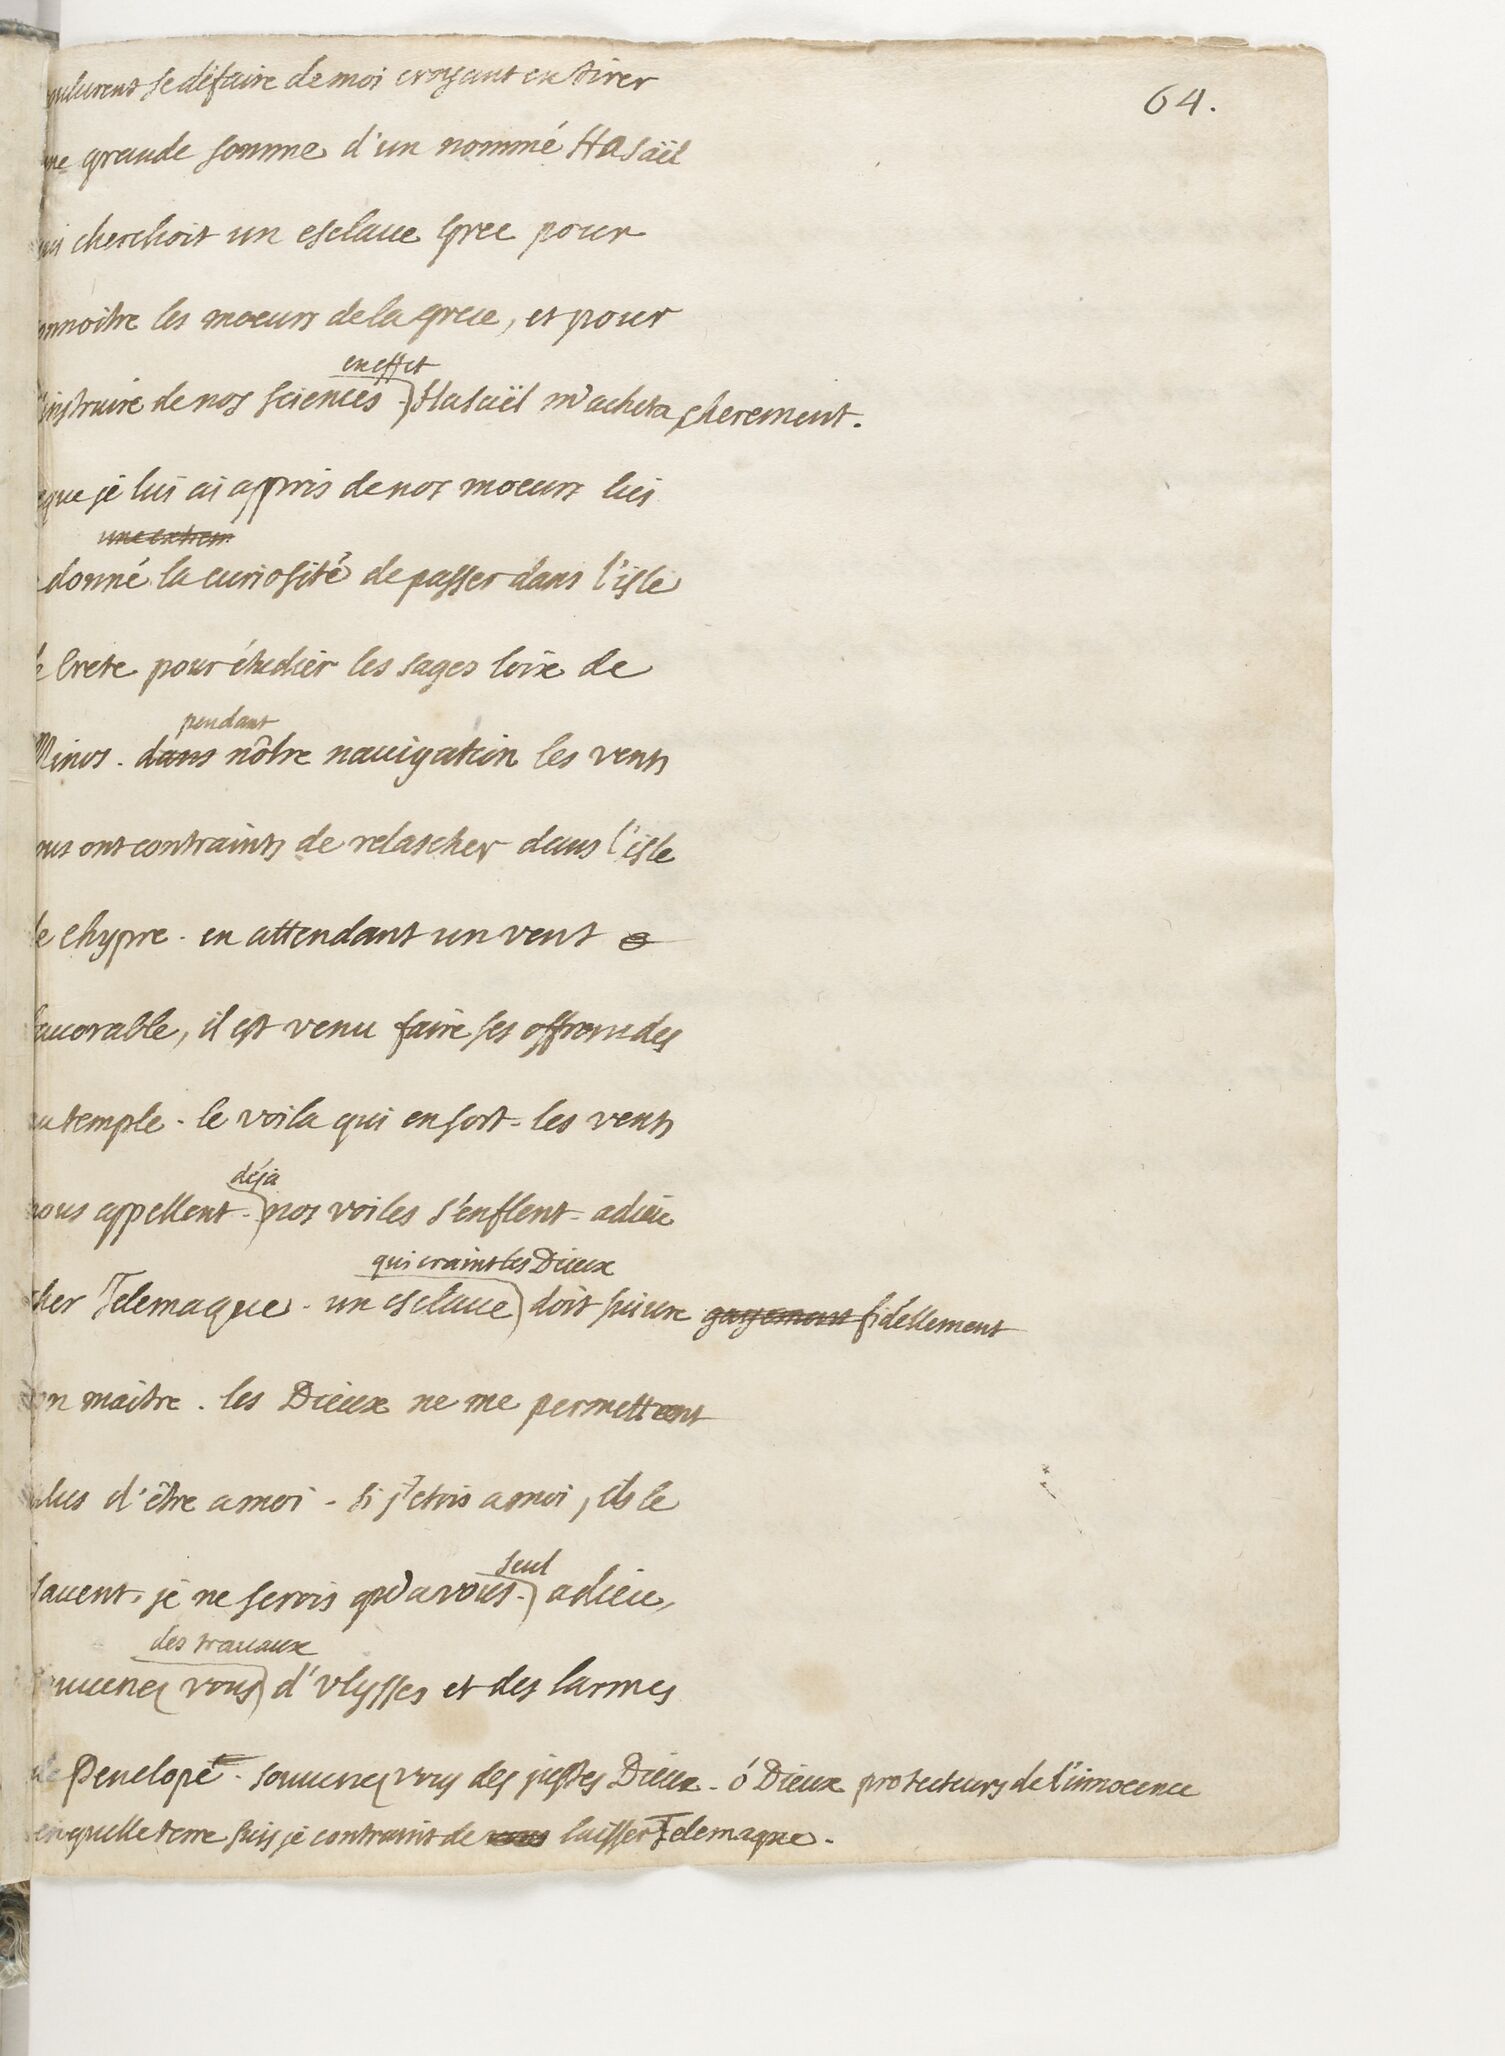 64.
oulurent se défaire de moi croyant en tirer
une grande somme d'un nommé Hasaël
qui cherchoit un esclaue Grec pour
onnoitre les moeurs de la grece, et pour
en effet
instruire de nos sciences. Hasaël m'acheta cherement.
que je lui ai appris de nos moeurs lui
une extrem
donné la curiosité de passer dans l'isle
de Crete pour étudier les sages loix de
pendant
Minos. dans nôtre nauigation les vents
ous ont contraints de relascher dans l'isle
de Chypre. en attendant un vent
fauorable, il est venu faire ses offrandes
au temple. le voila qui en sort. les vents
déja
nous appellent. nos voiles s'enflent. adieu
qui craint les Dieux
cher Telemaque. un esclaue doit suiure gayement fidellement
on maitre. les Dieux ne me permettent
plus d'être a moi. si j'etois a moi, ils le
seul
sauent, je ne serois qu'a vous. adieu,
des trauaux
souuenez vous d'Vlysses et des larmes
de Penelope. souuenez vous des justes Dieux. ô Dieux protecteurs de l'innocence
en quelle terre suis je contraint de vous laisser Telemaque.